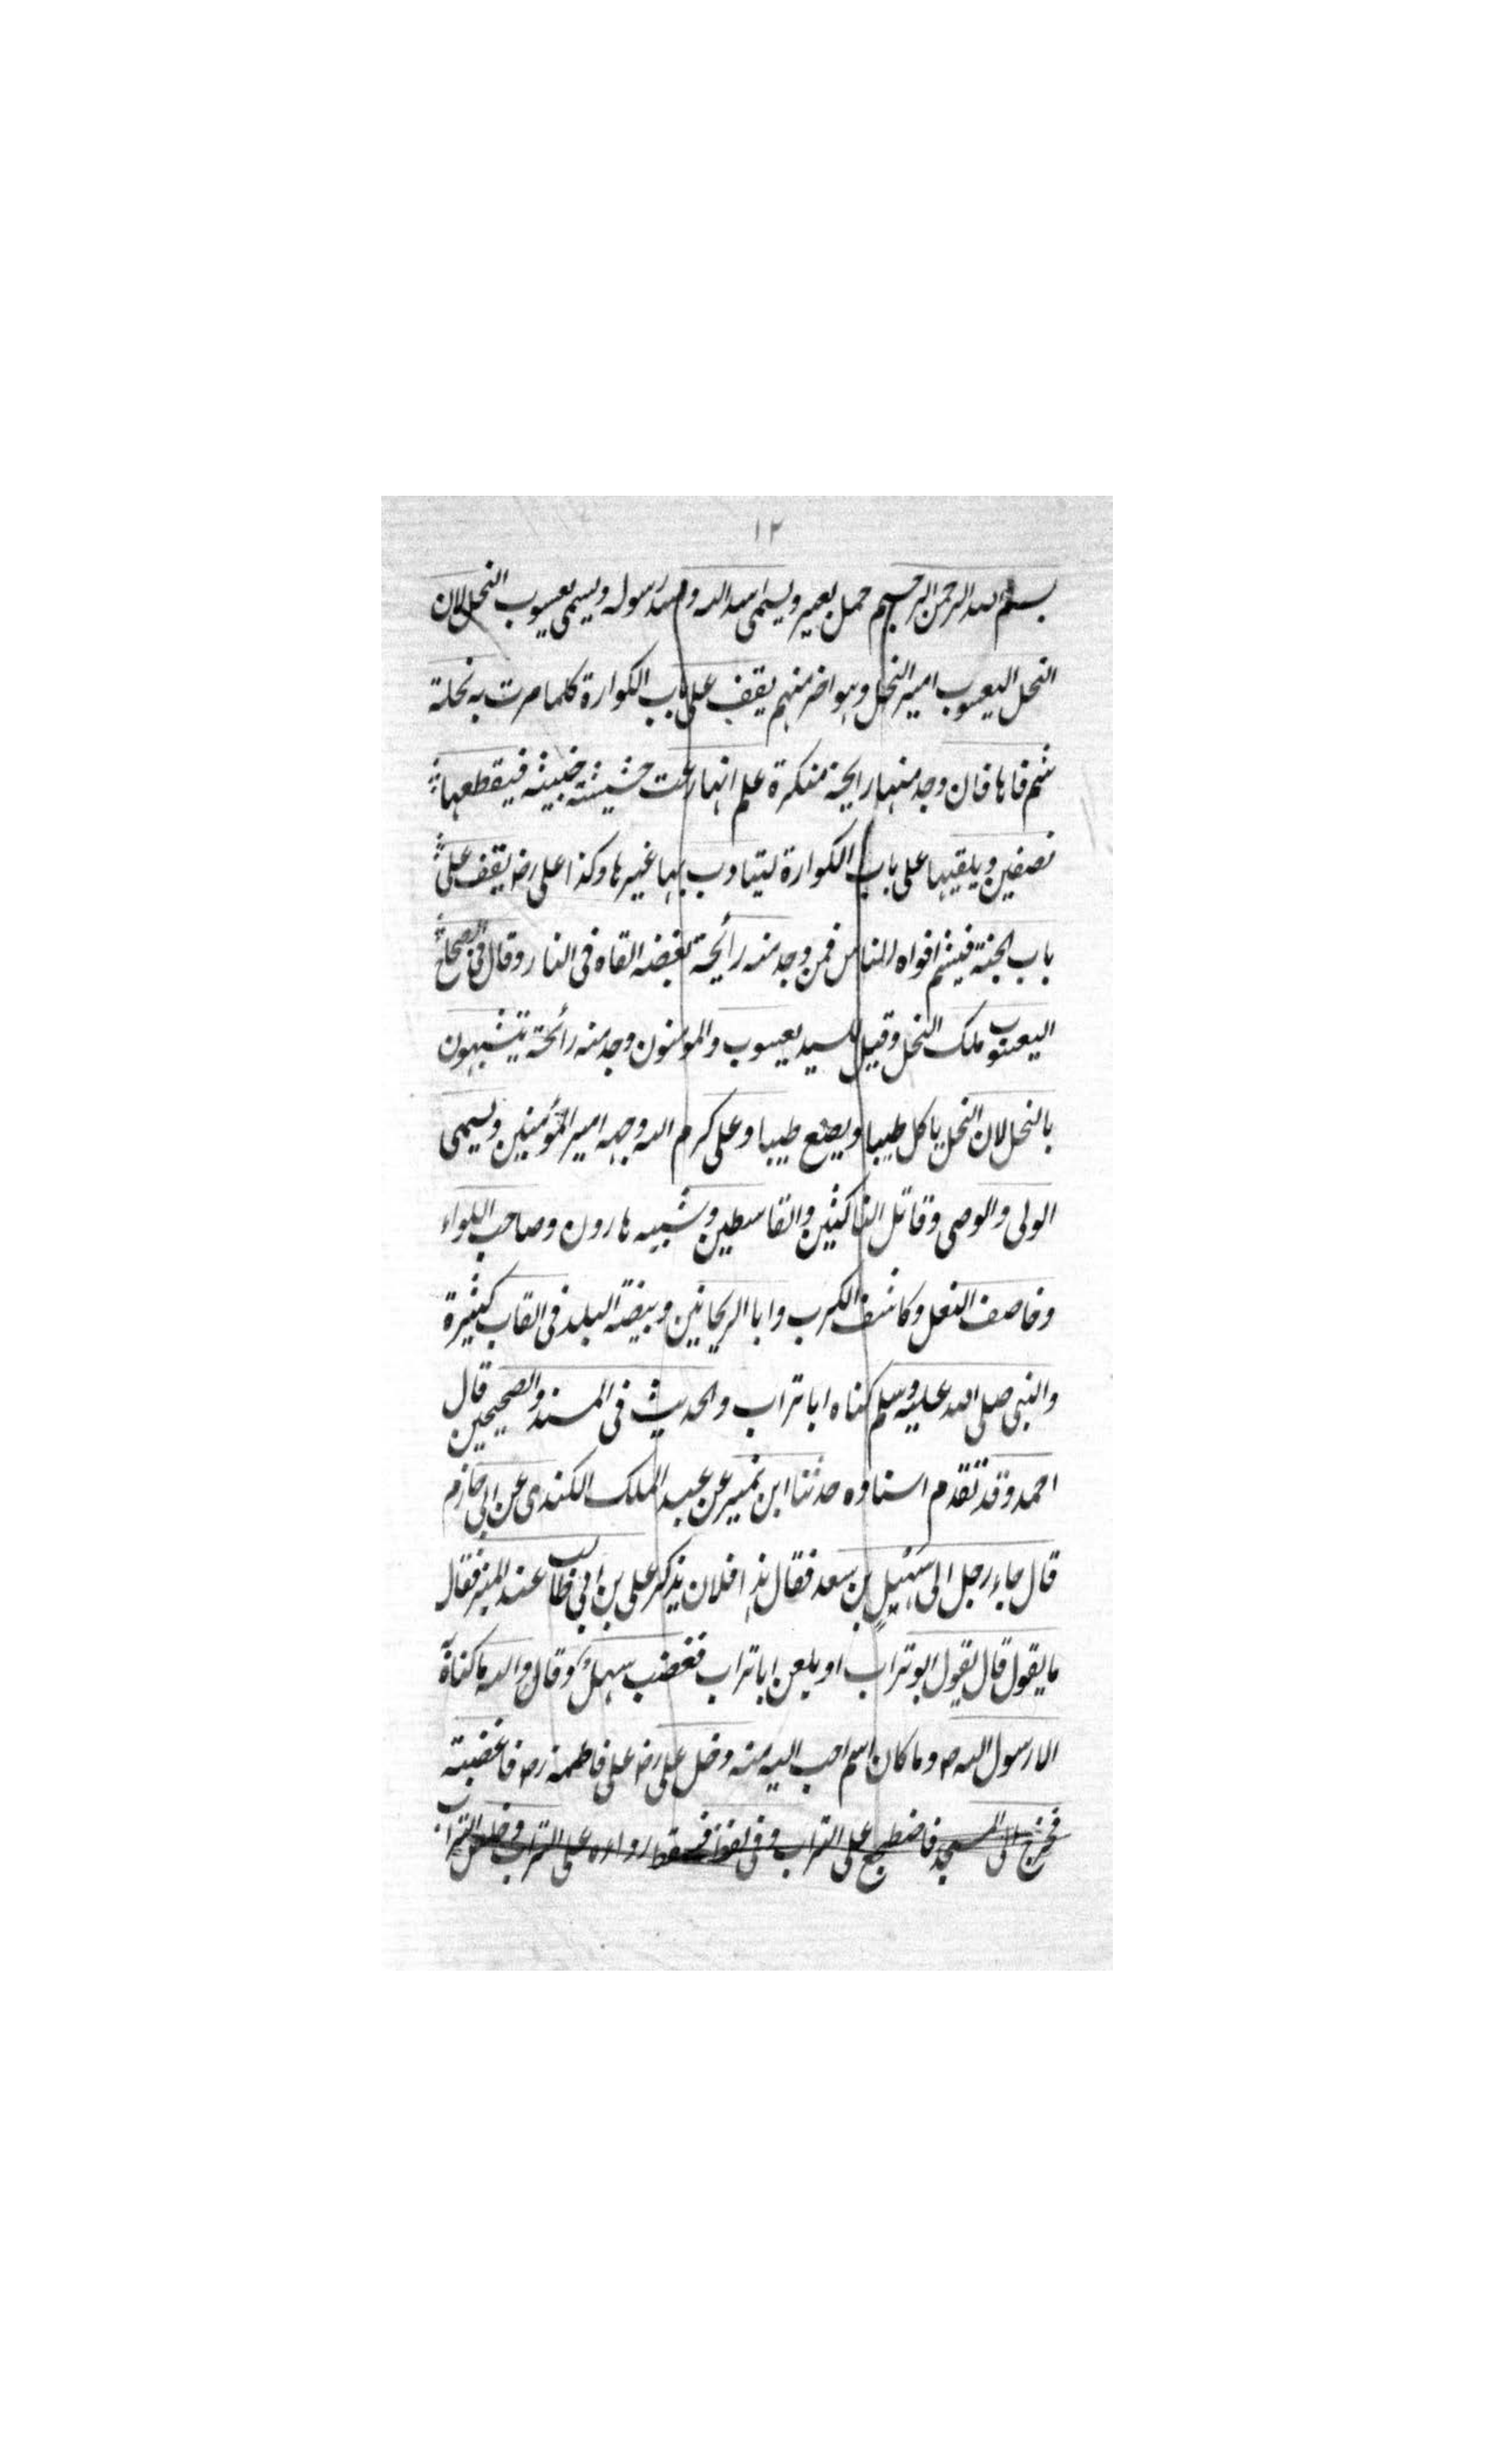 ١٢
بسم الله الرحمن الرحيم حمل بعير ويسمى اسد الله واسد رسوله ويسمى يعسوب النحل لان
النحل اليعسوب امير النحل وهو اضر منهم يقف على باب الكوارة كلما مرت به نحلة
شم فاها فان وجد منها رايحة منكرة علم انها رعت حشيشة خبيثة فيقطعها
نصفين ويلقيها على باب الكوارة ليتادب بها غيرها وكذا علي رضه يقف على
باب الجنة فيشم افواه الناس فمن وجد منه رائحة بغضه القاه في النار وقال في الصحاح
اليعسوب ملك النحل وقيل للسيد يعسوب والمومنون وجد منه رائحة يتشبهون
بالنحل لان النحل ياكل طيبا ويصنع طيبا وعلي كرم الله وجهه امير المؤمنين ويسمى
الولي والوصي وقاتل الناكثين والقاسطين وشبيه هارون وصاحب اللواء
وخاصف النعل وكاشف الكرب وابا الريحانين وبيضة البلد في القاب كثيرة
والنبي صلى الله عليه وسلم كناه ابا تراب والحديث في المسند والصحيحين قال
احمد وقد تقدم اسناده حدثنا ابن نمير عن عبد الملك الكندي عن ابي حازم
قال جاء رجل الى سهيل بن سعد فقال هذا فلان يذكر علي بن ابي طالب عند المنبر فقال
ما يقول قال يقول ابو تراب او يلعن ابا تراب فغضب سهل وقال والله ما كناه
الا رسول الله ص وما كان اسم احب اليه منه دخل علي رضه على فاطمة رضه فاغضبته
فخرج الى المسجد فاضطجع على التراب وفي لفظ فسقط رداءه على التراب وخلص التراب